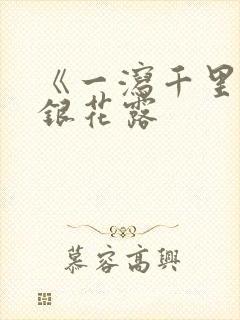 《一瀉千里
銀花露
慕容高興